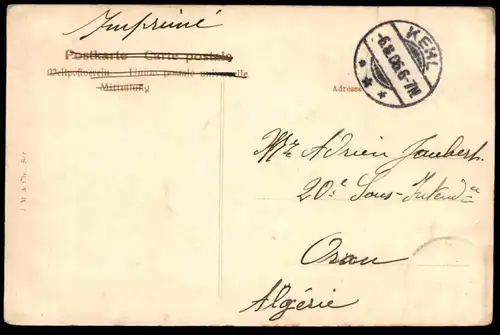 Imprimé
Postkarte - Carte postale
Weltpostverein - Union postale universelle
Mitteilung
KEHL
-6.8.06.6-7N.
Adresse
Mr Adrien Joubert
20e Sous-Intend
Oran
Algérie